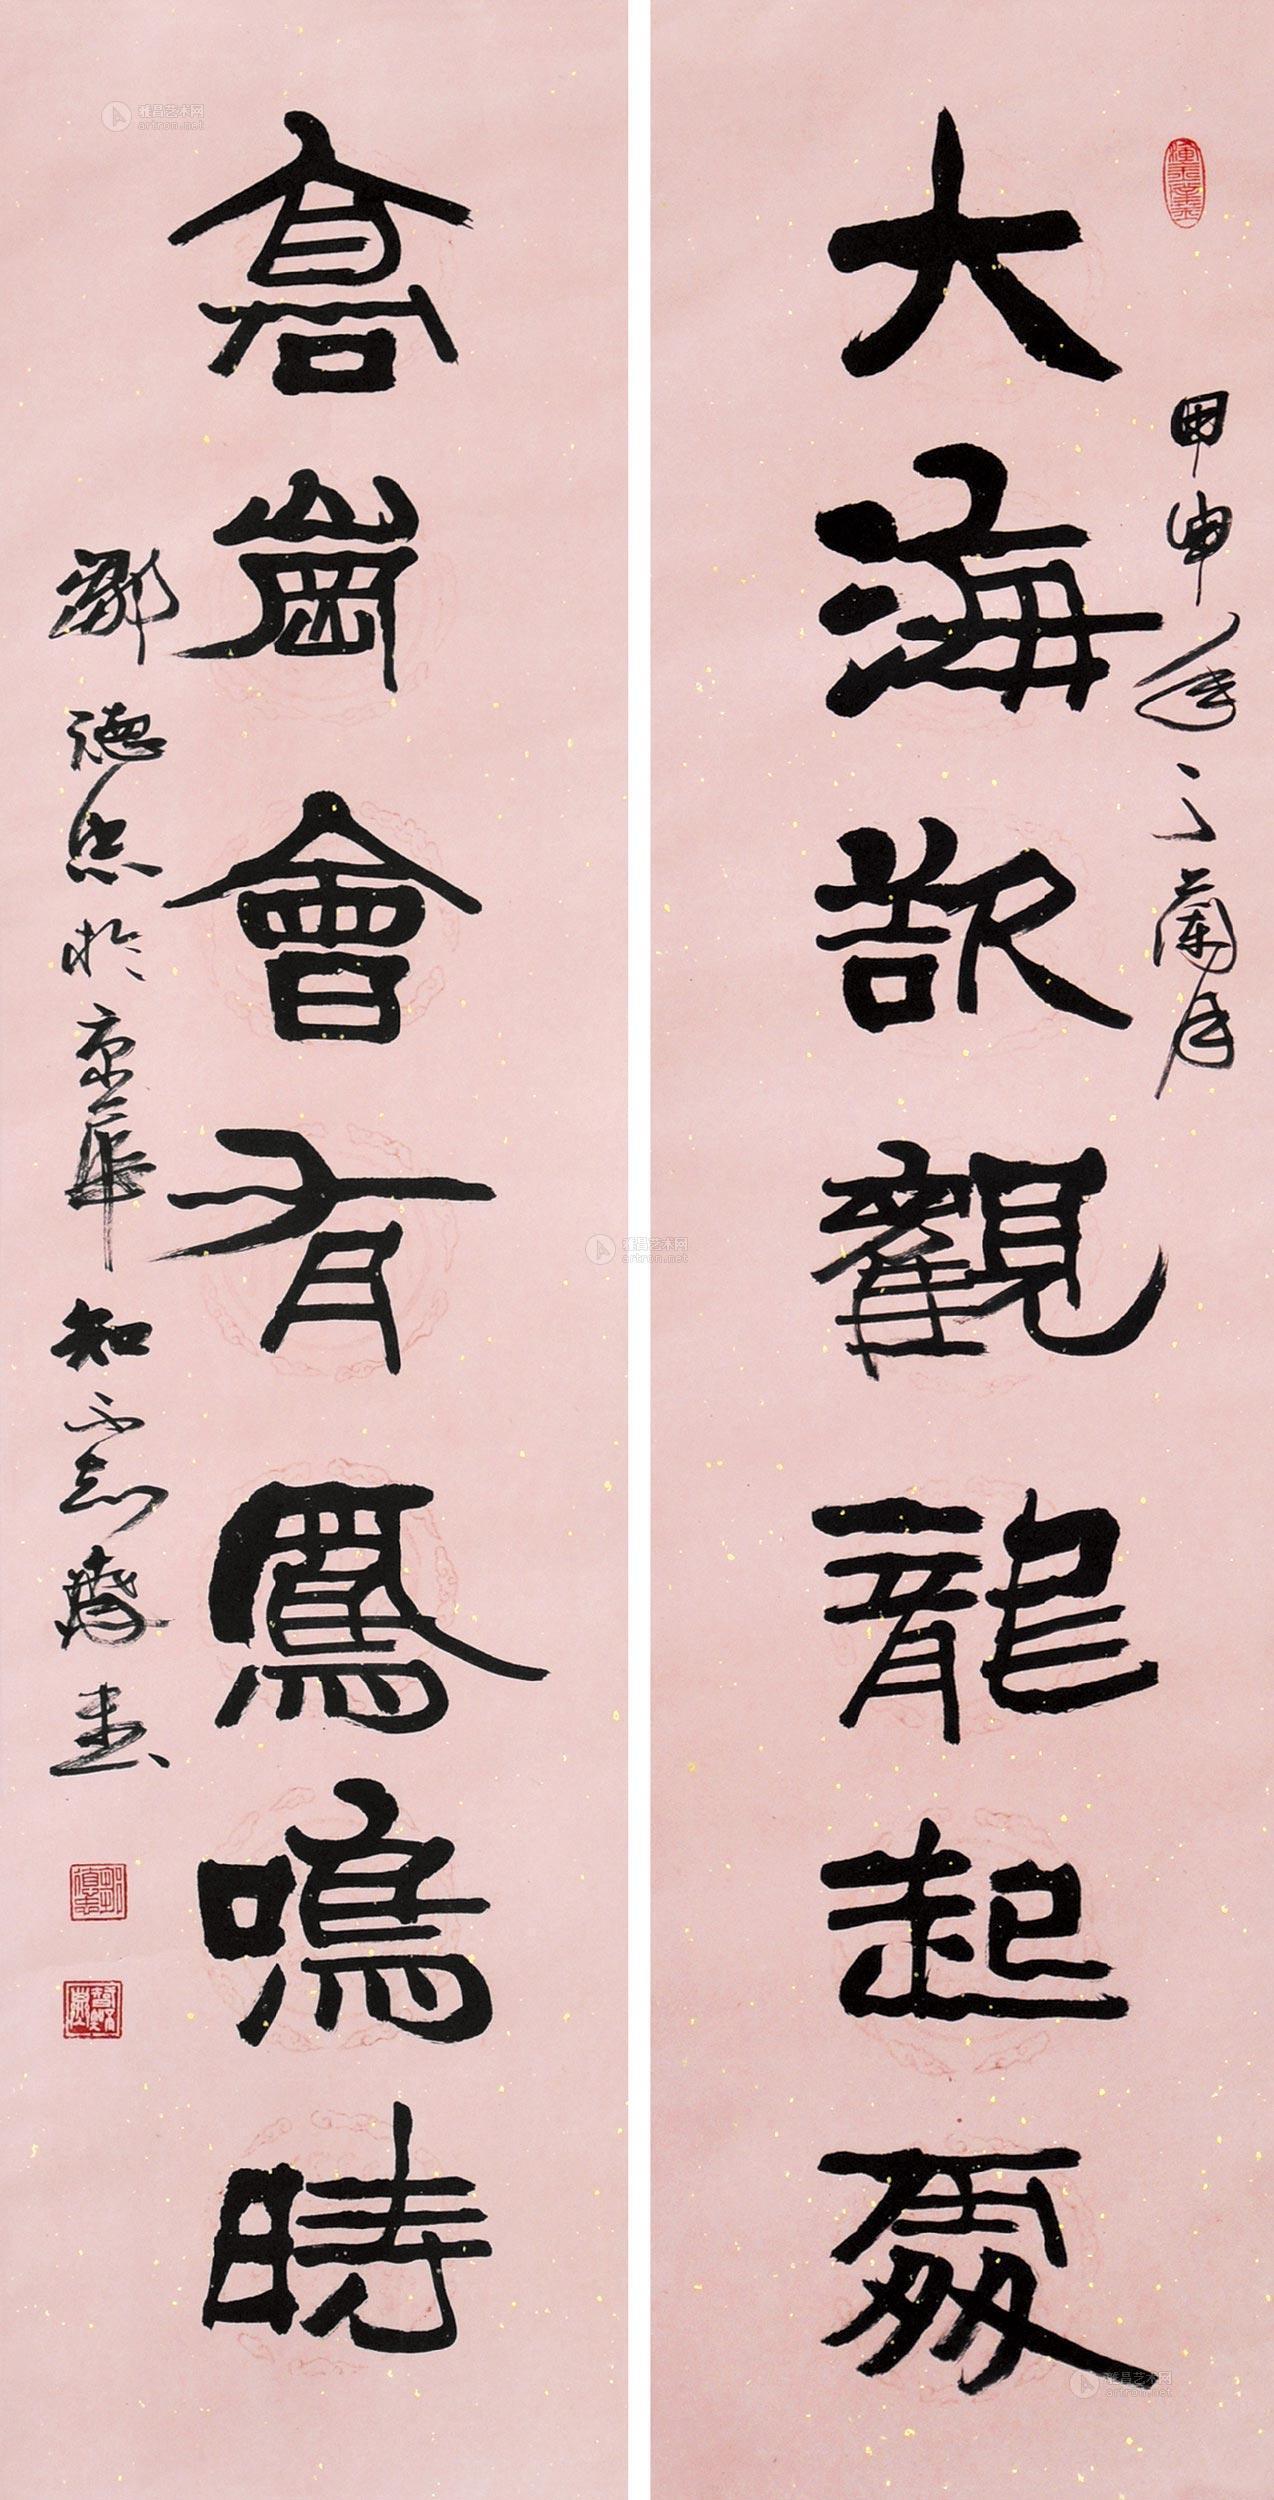 大海欲觀龍起處
甲申年之蘭月
高崗會有鳳鳴時
鄒德忠於京華知不齋書
雅昌艺术网
artron.net
雅昌艺术网
artron.net
雅昌艺术网
artron.net